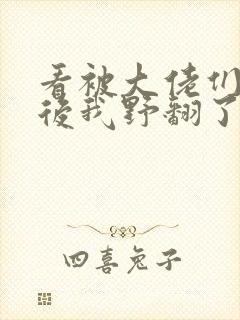 看被大佬们
后我野翻了
四喜兔子